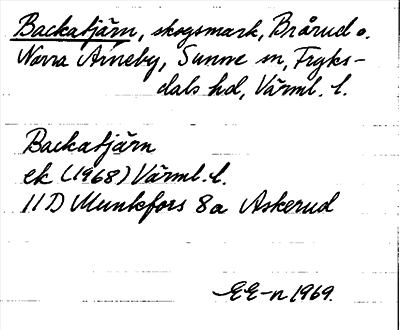 Backatjärn, skogsmark, Brårud o.
Norra Ärneby, Sunne sn, Fryks-
dals hd, Värml. l.
Backatjärn
ek (1968) Värml. l.
11D Munkfors 8a Askerud
EE-n 1969.